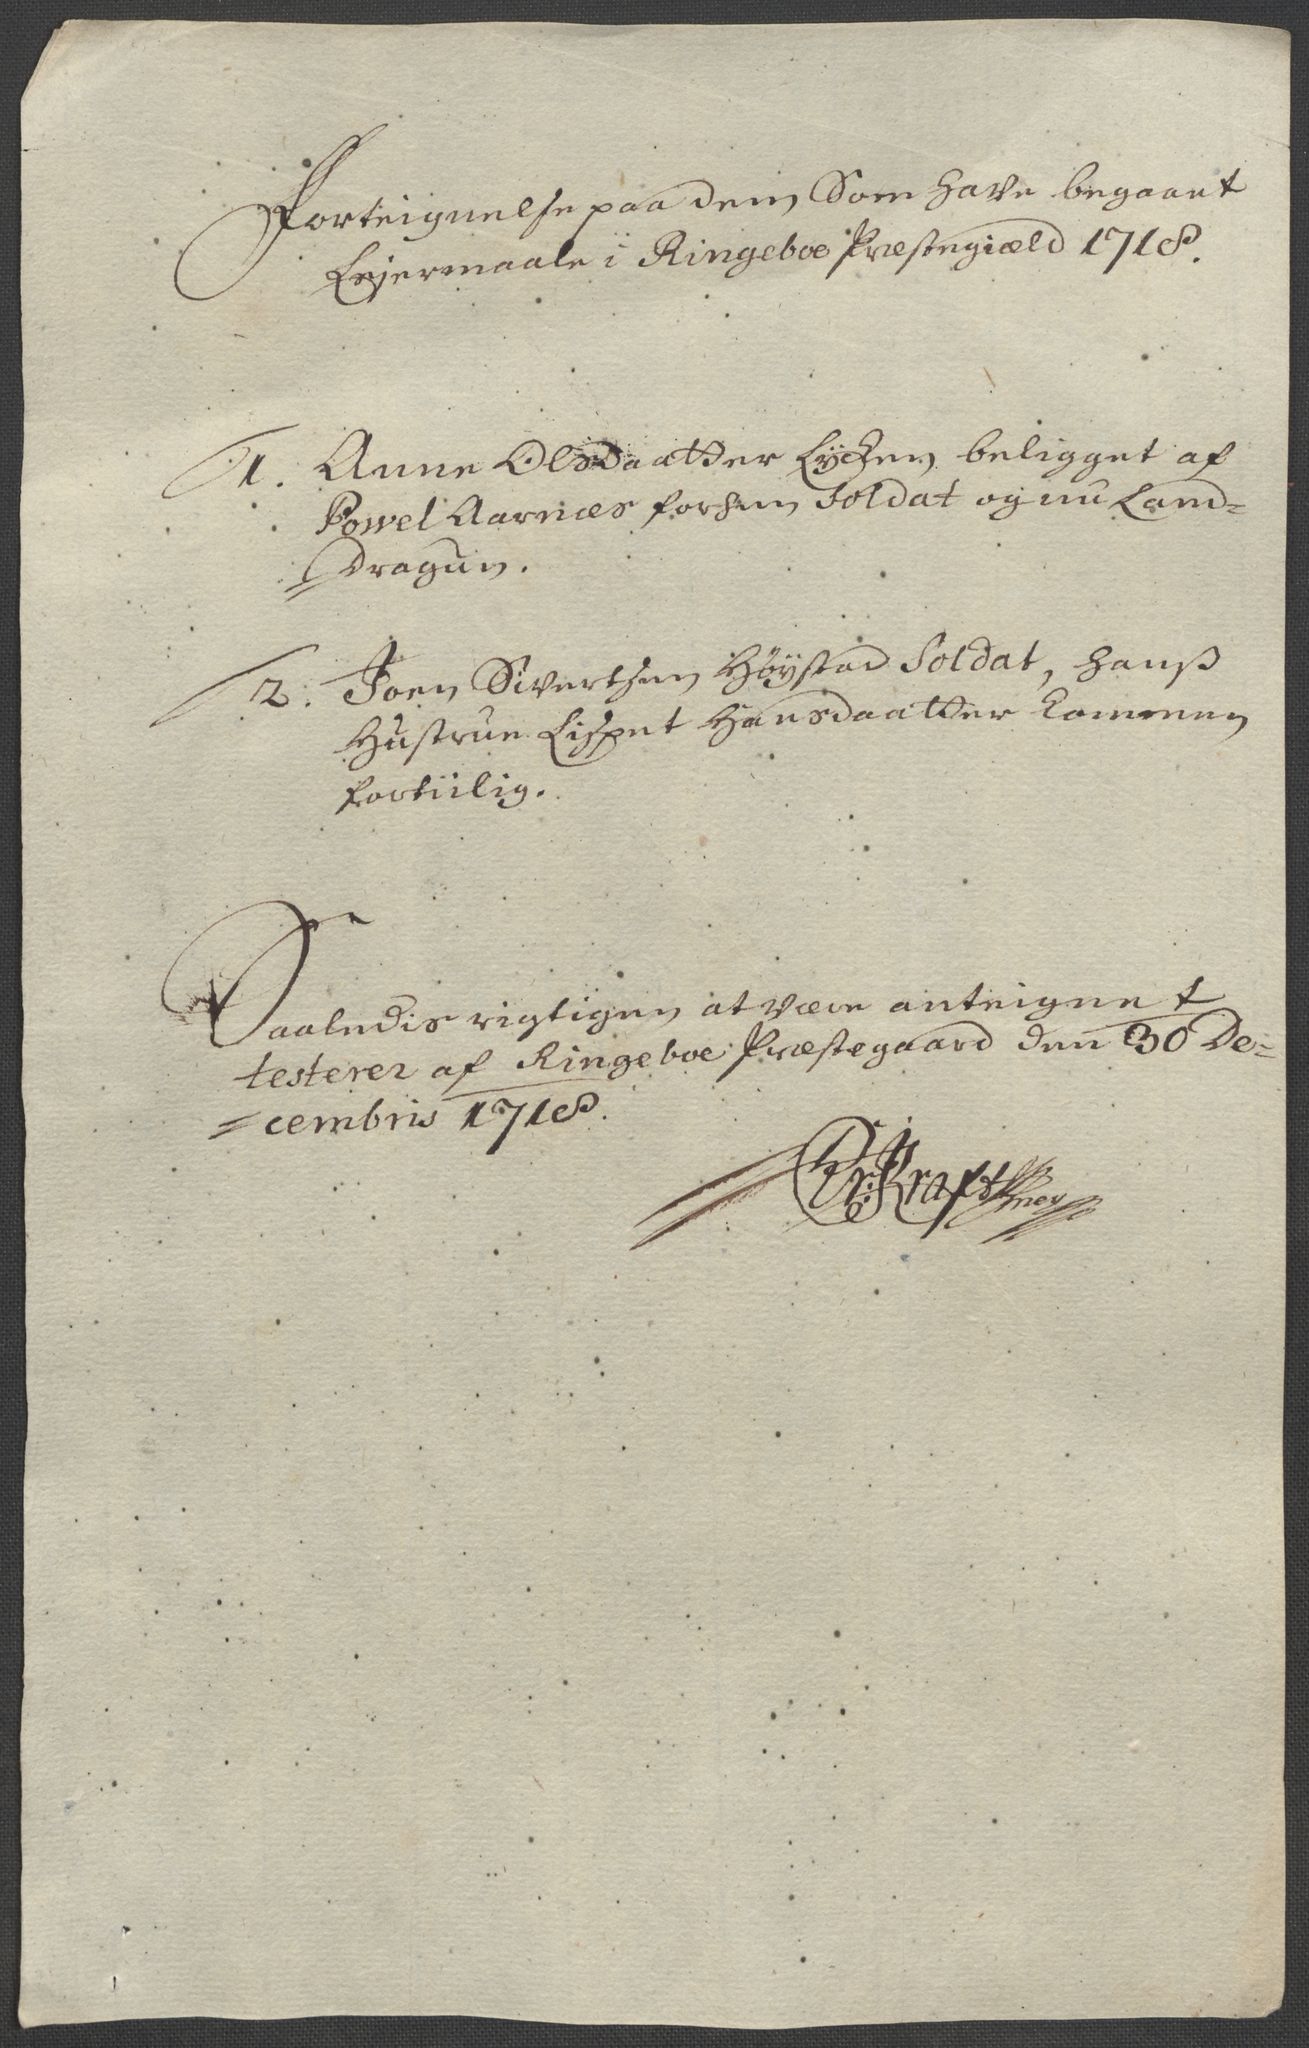 Forteignelse paa dem Som have begaaet
Lejermaale i Ringeboe Præstegiæld 1718.
1. Anne Olsdaatter Lÿchen beligget af
Powel Aarnæs forhen Soldat og nu Land=
Dragun.
2. Joen Siverthsen Höÿstad Soldat, hanß
Hustrue Lispet Hansdaatter kommen
fortiilig.
Saaledis rigtigen at være anteignet
testerer af Ringeboe Præstegaard den 30 De=
=cembris 1718.
Kraft